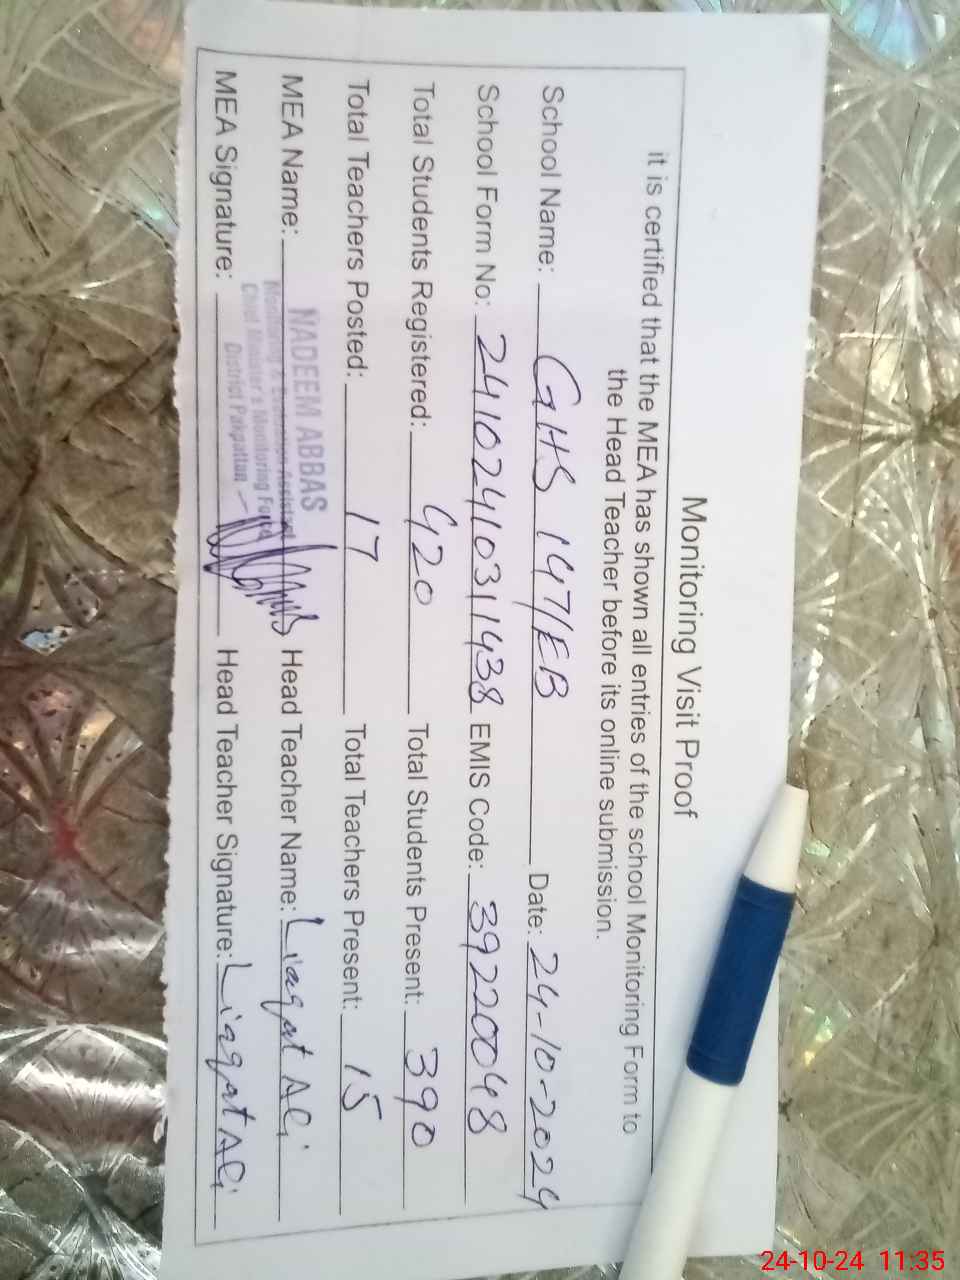 Monitoring Visit Proof
it is certified that the MEA has shown all entries of the school Monitoring Form to
the Head Teacher before its online submission.
School Name: GHS 147/EB Date: 24-10-2024
School Form No: 241024103 11438 EMIS Code: 39220048
Total Students Registered: 420 Total Students Present: 390
Total Teachers Posted: 17 Total Teachers Present: 15
MEA Name: NADEEM ABBAS Head Teacher Name: Liaqat Ali
Monitoring & Evaluation Assistant
Chief Minister's Monitoring Force
District Pakpattan
MEA Signature: Head Teacher Signature: Liaqat Ali
24-10-24 11:35